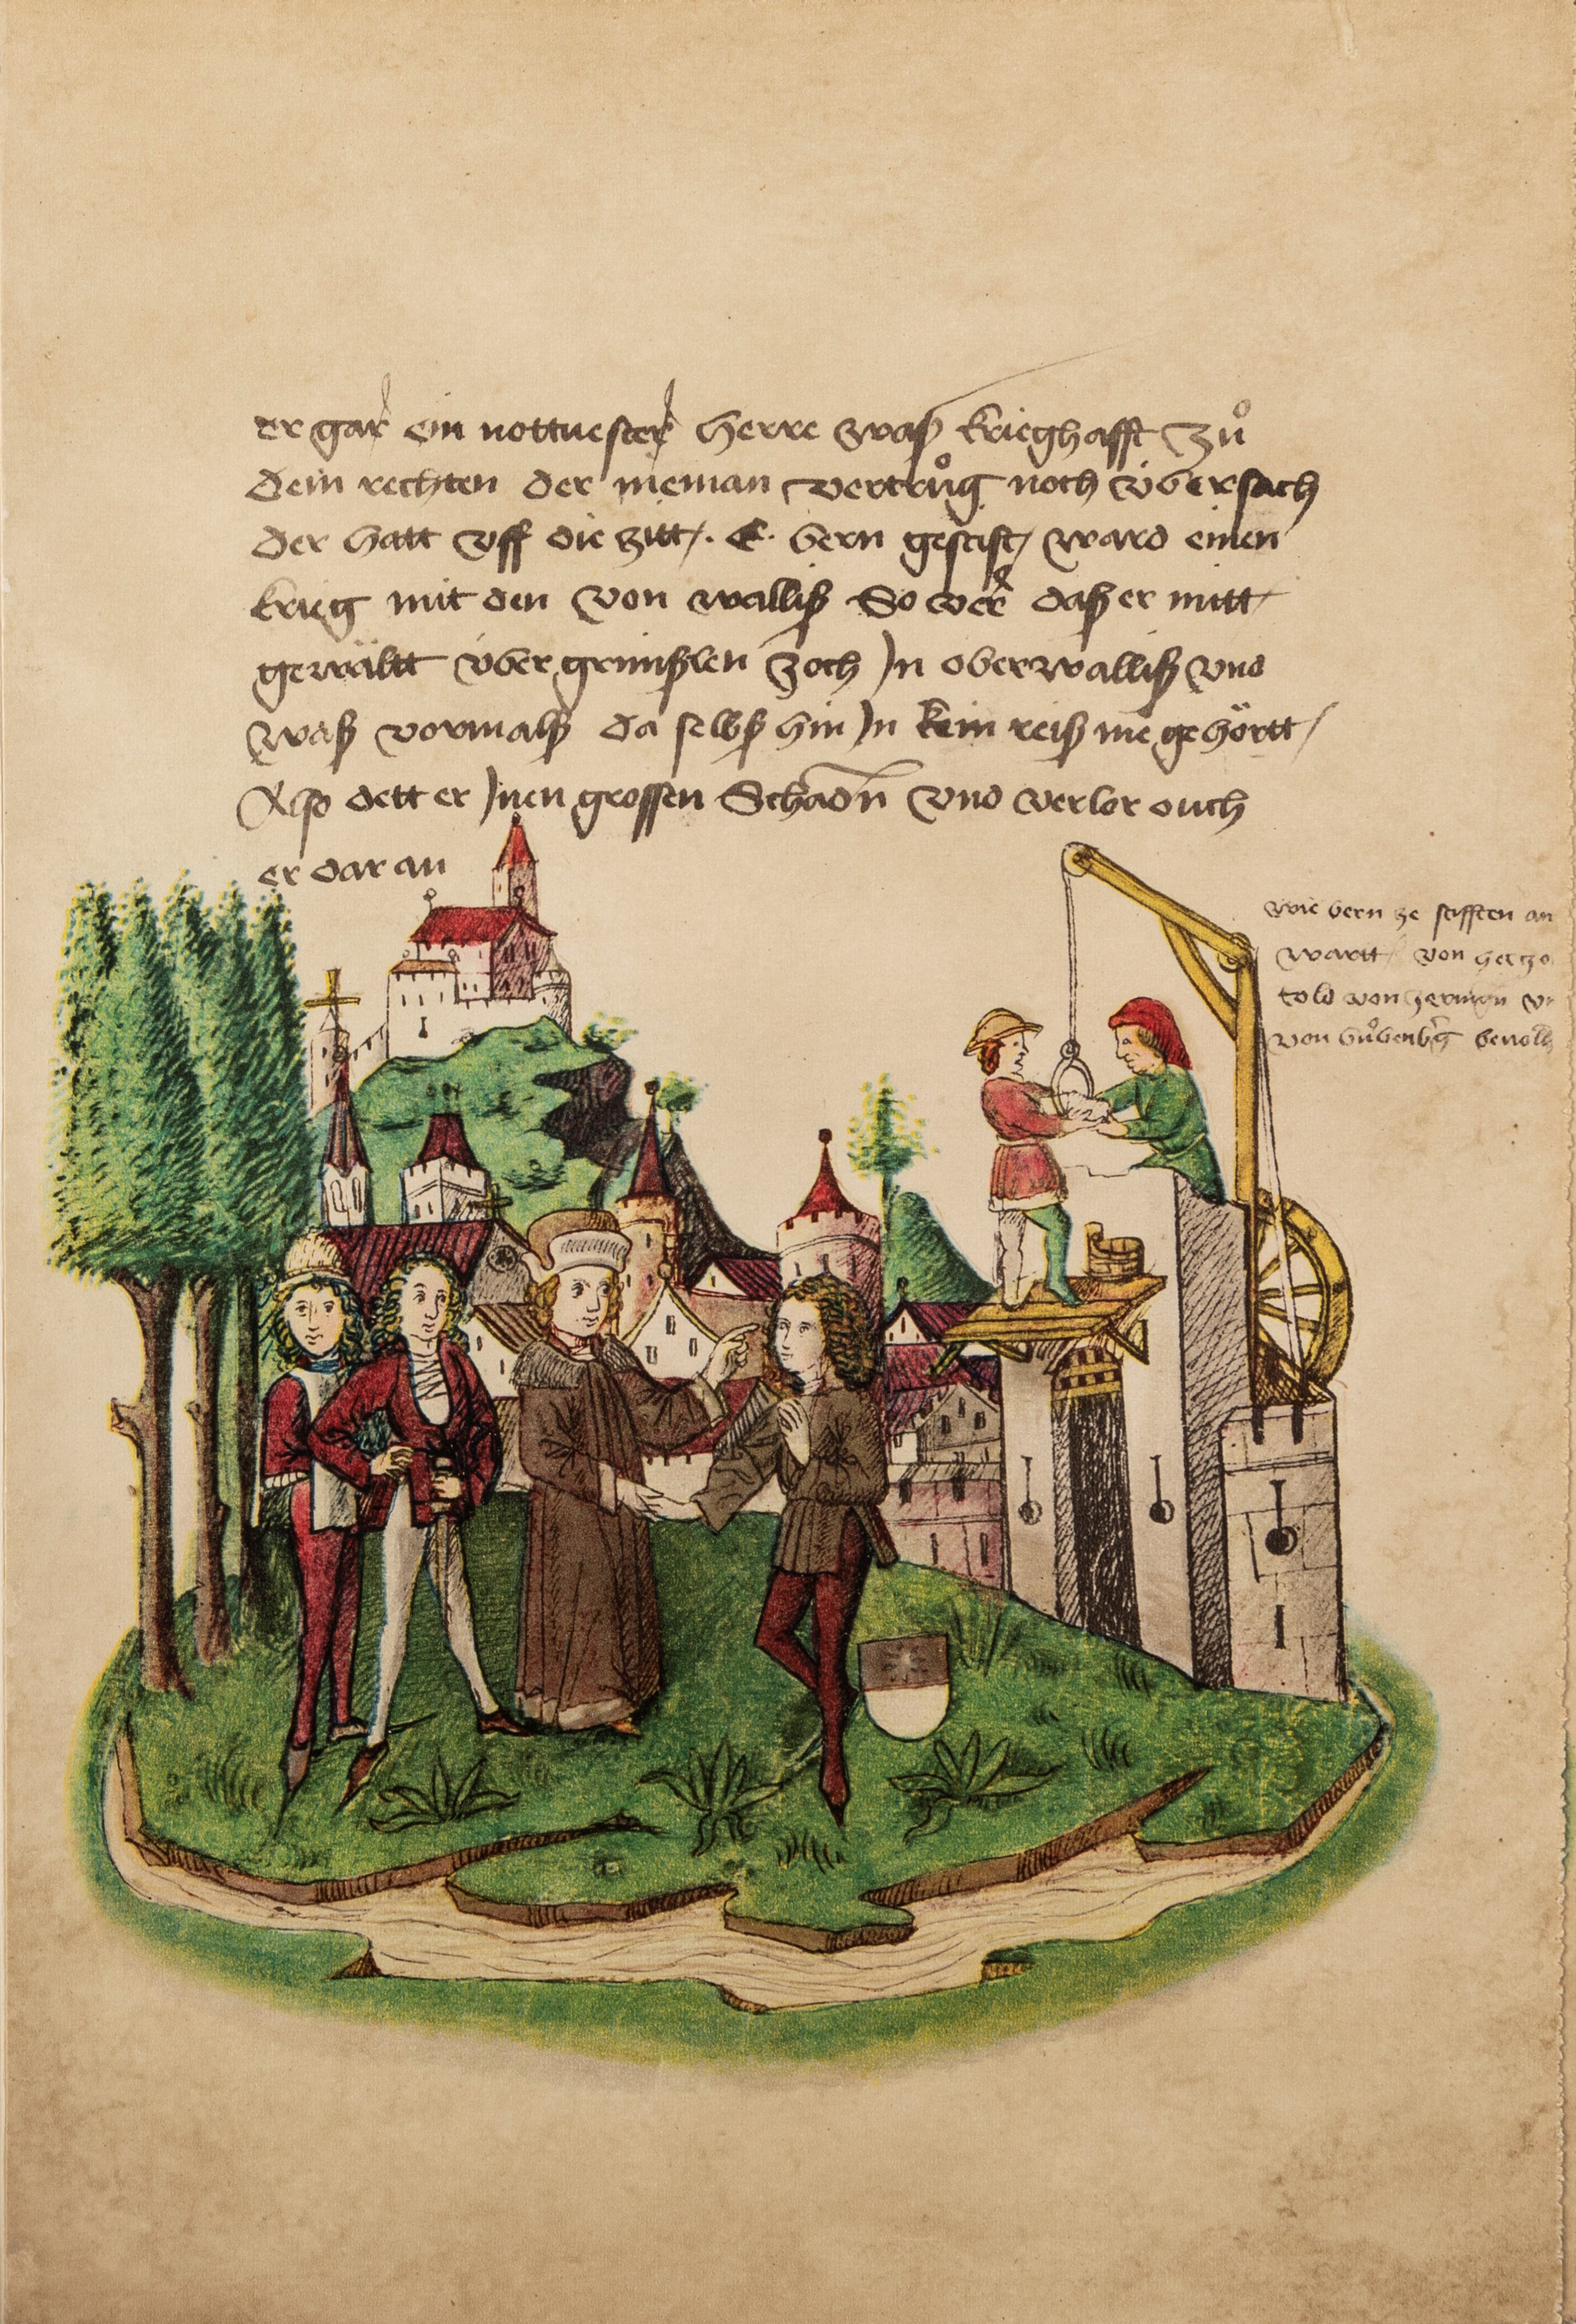 er gar ein nottuester herre waß krieghafft zů
dem rechten der nieman vertrůg noch übersach
der hatt vff die zitt / . E . bern gestift / ward einen
krieg mit den von walliß So ver daß er mitt
gewaltt über grimßlen zoch Jn oberwalliß vnd
waß vormalß da selbß hin Jn kein reiß nie gehörtt /
Also dett er Jnen grossen Schadn vnd verlor ouch
er dar an
wie bern ze stifften an
wartt von hertzo
told von zeringen
von bůbenbg